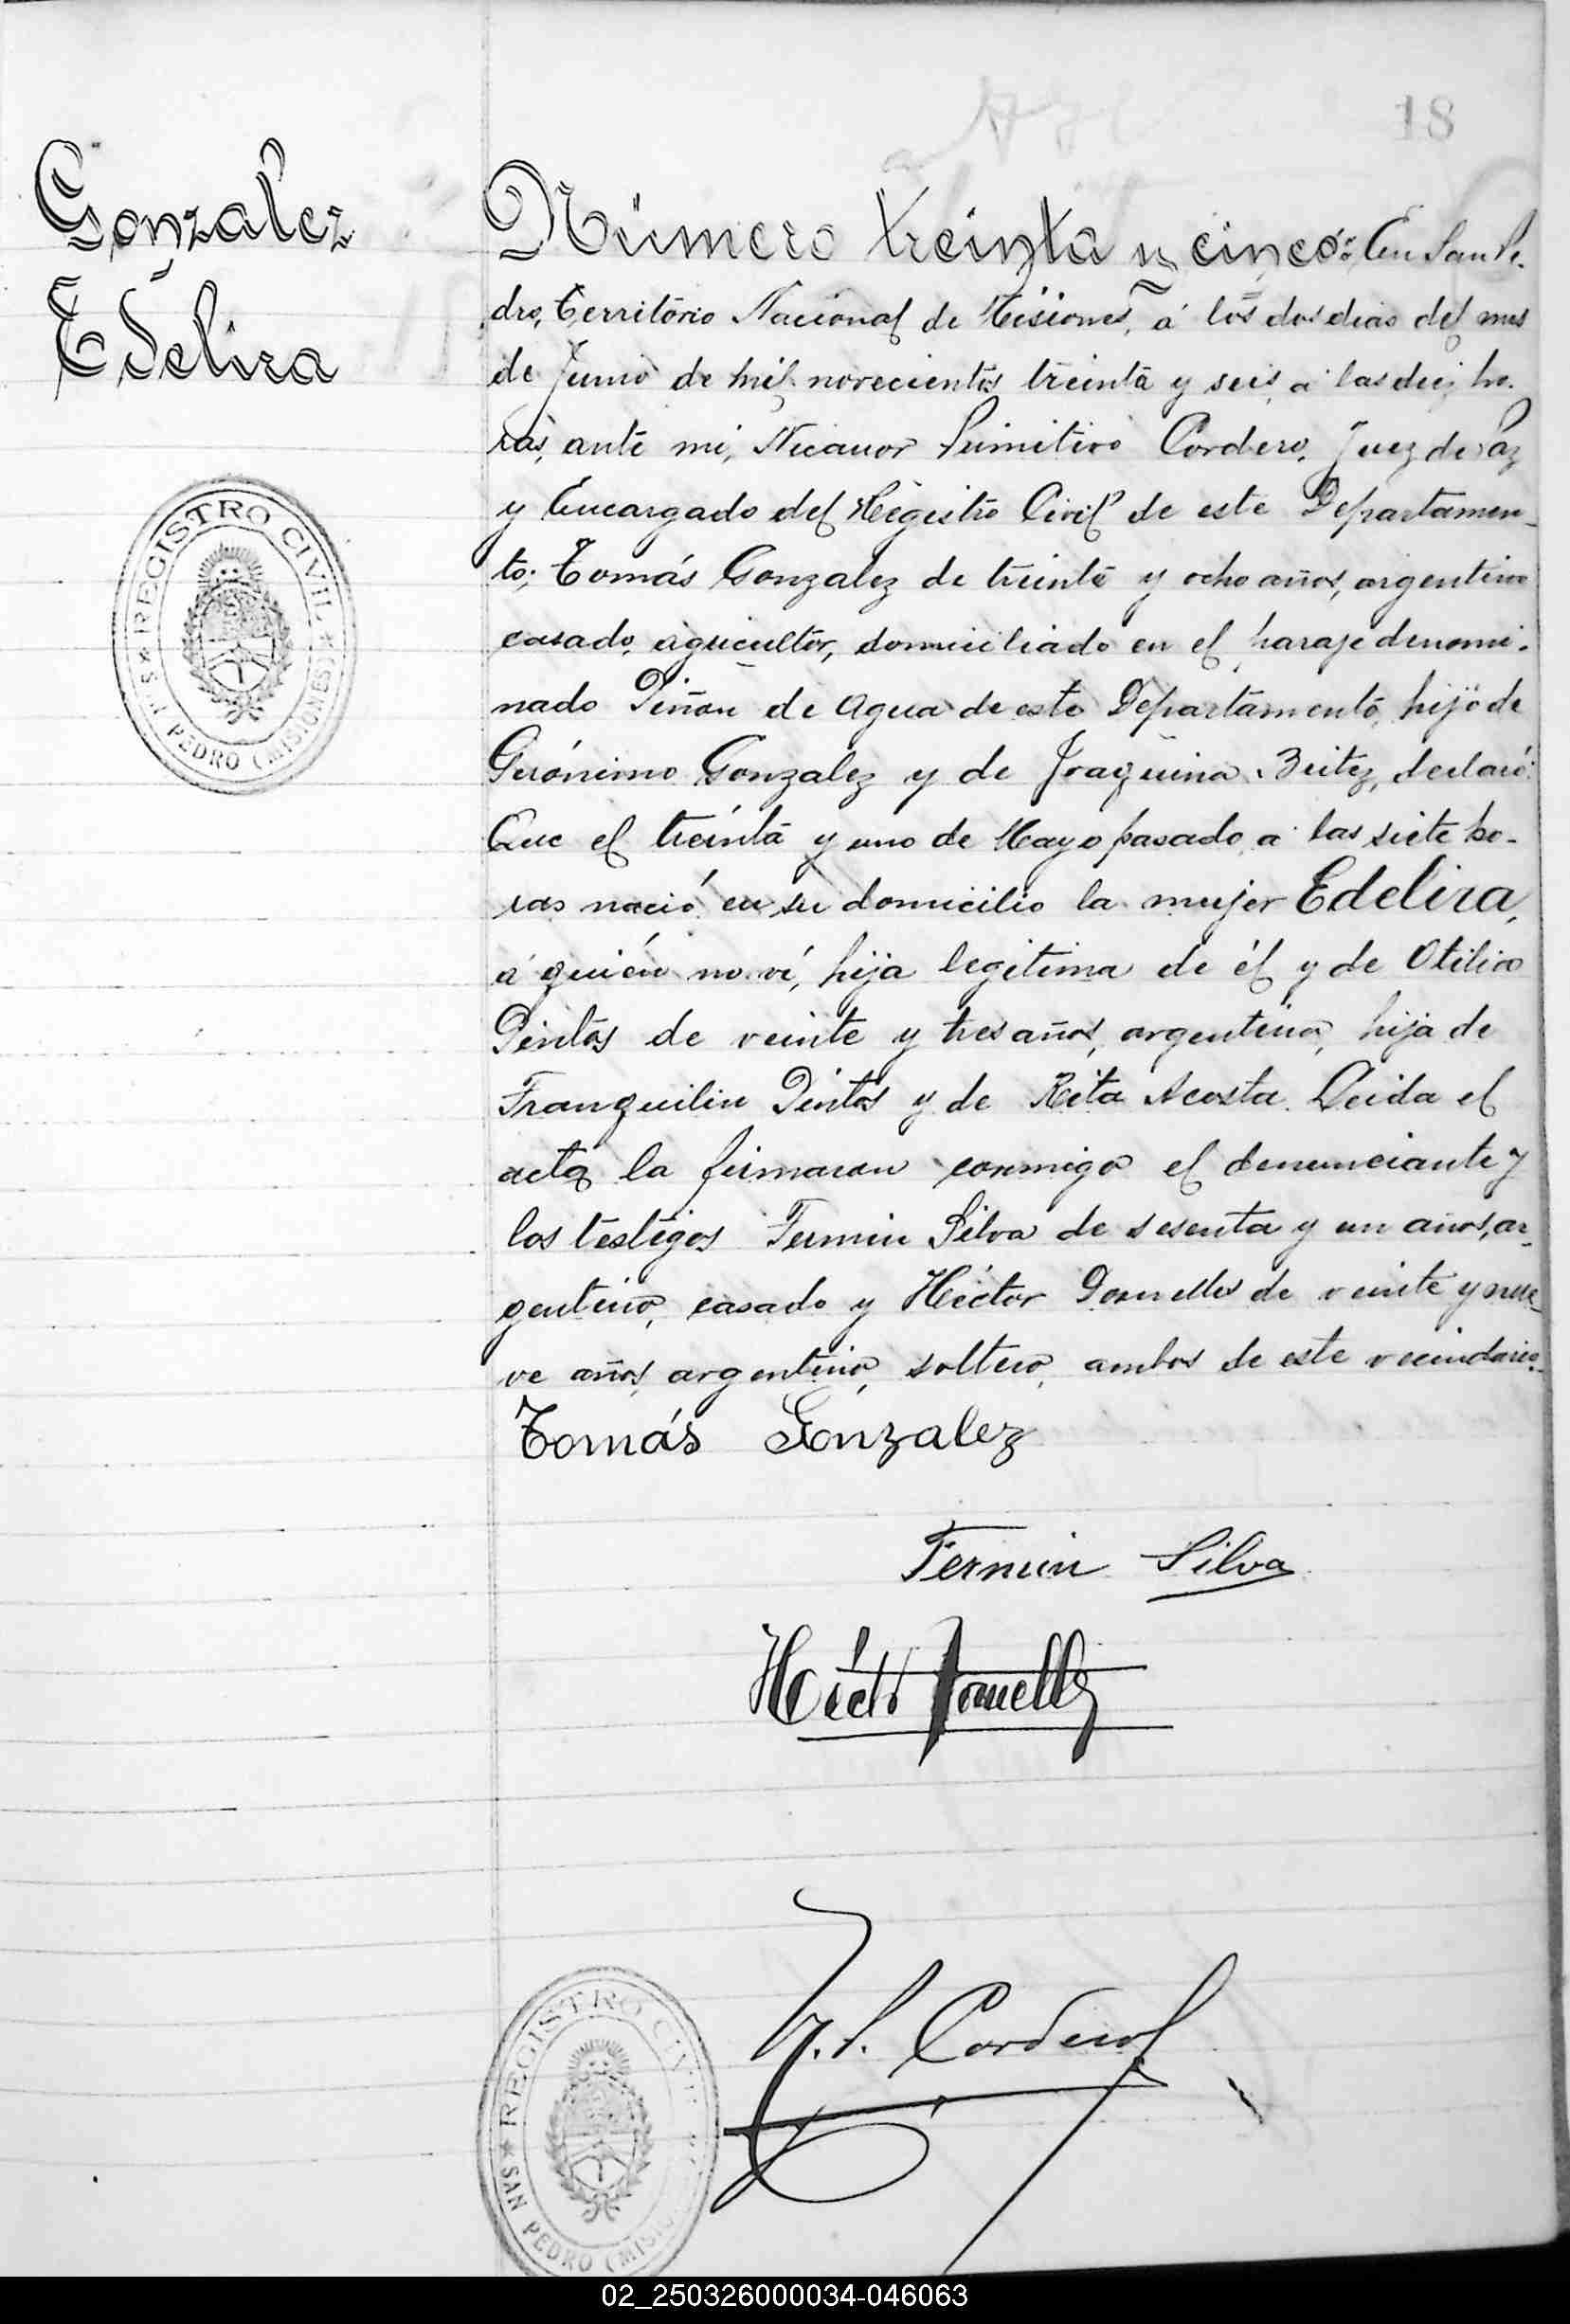 18
Gonzalez
Edelira
Número treinta y cinco: En San Pe-
dro, Territorio Nacional de Misiones, á los dos dias del mes
de Junio de mil novecientos treinta y seis, a las diez ho-
ras, ante mi, Nicanor Primitivo Cordero, Juez de Paz
y Encargado del Registro Civil de este Departamen-
to; Tomás Gonzalez de treinta y ocho años, argentino
casado, agricultor, domiciliado en el paraje denomi-
nado Piñon de Agua de este Departamento, hijo de
Gerónimo Gonzalez y de Joaquina Beitez, declaró:
Que el treinta y uno de Mayo pasado, a las siete ho-
ras nació en su domicilio la mujer Edelira,
á quién no ví, hija legitima de él y de Otilia
Pintos de veinte y tres años, argentina, hija de
Franquilin Pintos y de Rita Acosta. Leida el
acta la firmaron conmigo el denunciante y
los testigos Fermin Silva de sesenta y un años, ar-
gentino, casado y Héctor de veinte y nue-
ve años, argentino, soltero, ambos de este vecindario.
Tomás Gonzalez
Fermin Silva
Héctor
N. P. Cordero
★ REGISTRO CIVIL ★
SAN PEDRO (MISIONES)
★ REGISTRO CIVIL
SAN PEDRO (MISIO
02_250326000034-046063